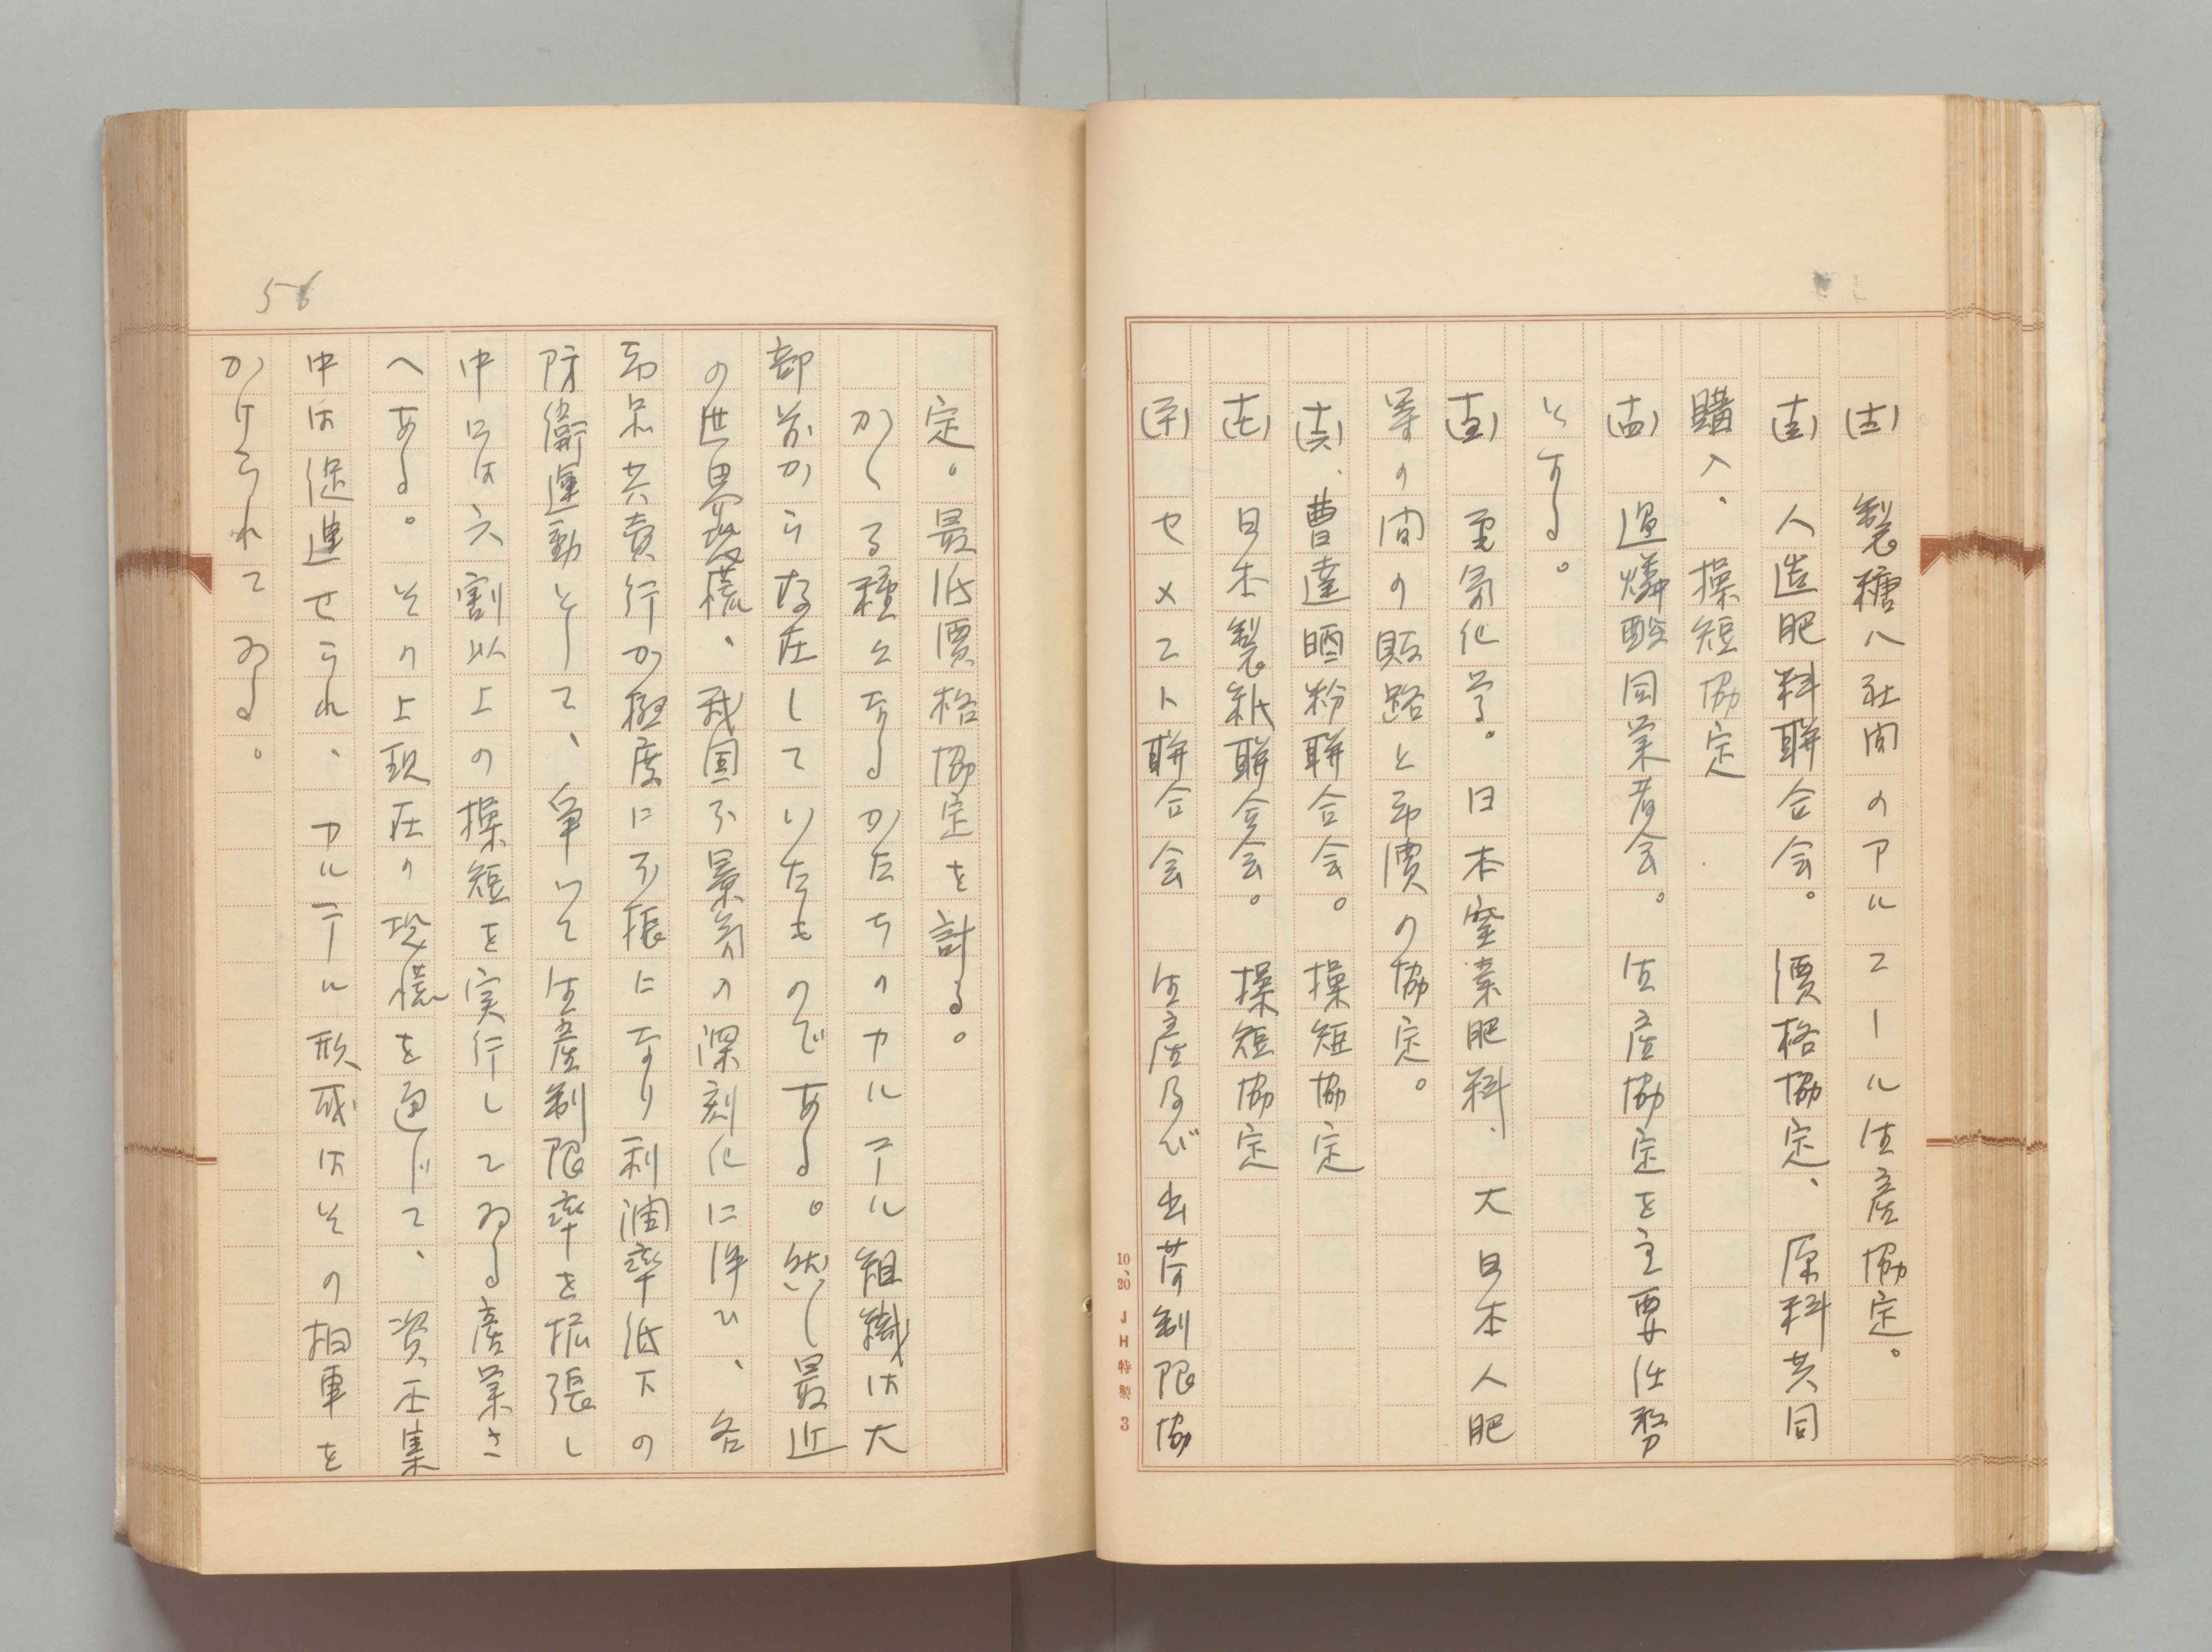 (十二) 製糖八社間のアルコール生産協定。
(十三) 人造肥料聯合会。價格協定、原料共同
購入、操短協定
(十四) 過燐酸同業者会。生産協定を主要任務
とする。
(十五) 電気化学。日本窒素肥料、大日本人肥
等の間の販路と市價の協定。
(十六)、曹達晒粉聯合会。操短協定
(十七) 日本製紙聯合会。操短協定
(十八) セメント聯合会 生産及び出荷制限協
10、20 JH特製 3
56
定。最低價格協定を計る。
かくる種々なるかたちのカルテル組織は大
部前から存在していたものである。然し最近
の世界恐慌、我国不景気の深刻化に伴ひ、各
商品共賣行か極度に不振になり利潤率低下の
防衛運動として、争いて生産制限率を拡張し
中には六割以上の操短を実行してゐる産業さ
へある。その上現在の恐慌を通じて、資本集
中は促進せられ、カルテル形成はその拍車を
かけられてゐる。